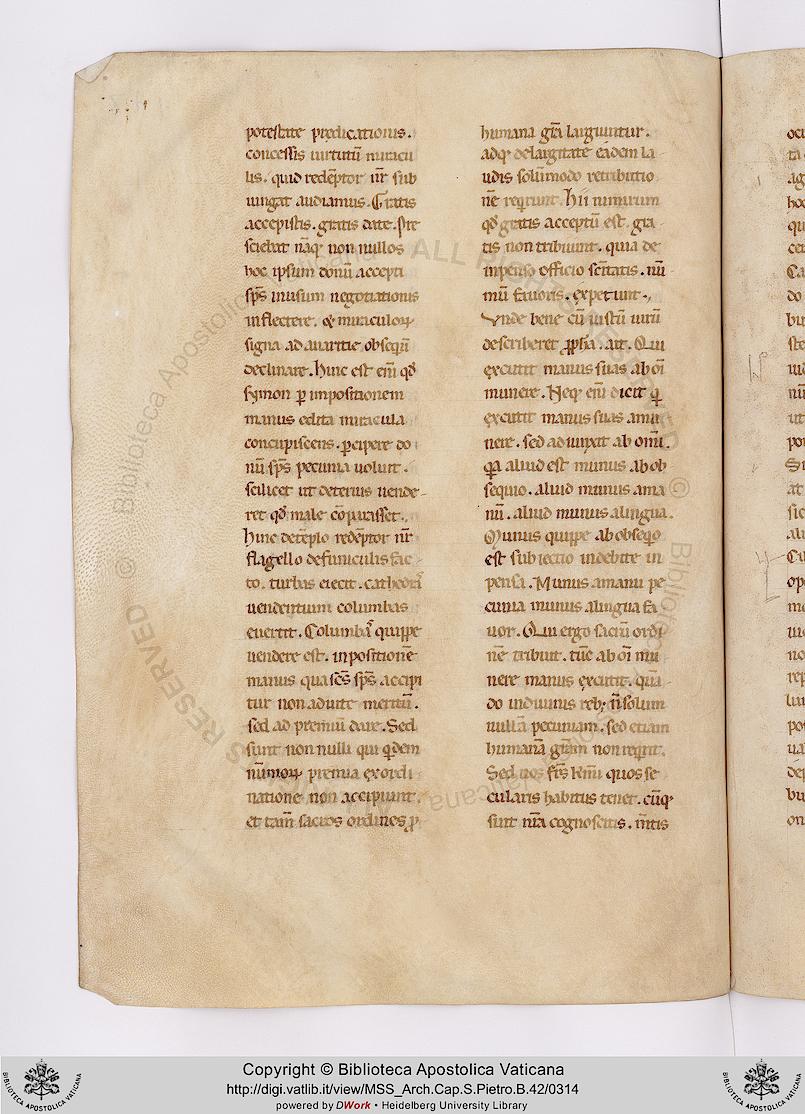 potestate predicationis.
concessis uirtutū miracu
lis. quid redēptor nr̄ sub
iungat audiamus. Gratis
accepistis. gratis date. Pre
sciebat nāq; non nullos
hoc ipsum donū accepti
sp̄s inusum negotiationis
inflectere. & miraculoꝝ
signa ad auaritie obsequiū
declinare. Hinc est eni̅ qd̄
symon ꝑ impositionem
manus edita miracula
concupiscens. ꝑcipere do
nū sp̄s pecunia uoluit.
scilicet ut deterius uende-
ret qd̄ male cōparasset.
Hinc detēplo redēptor nr̄
flagello defuniculis fac
to. turbas eiecit. cathedrā
uendentium columbas
euertit. Columbā quippe
uendere est. inpositionē
manus qua sc̄s sp̄s accipi
tur non aduite meritū.
sed ad premiū dare. Sed
sunt non nulli qui qͥdem
nūmoꝝ premia exordi
natione non accipiunt.
et tam̄ sacros ordines ꝓ
humana gr̄a largiuntur.
adq; delargitate eadem la
udis solūmodo retributio
nē req̄runt. Hii nimirum
qd̄ gratis acceptū est. gra
tis non tribuunt. quia de
inpenso officio sc̄itatis. nū
mū fauoris. expetunt.
Vnde bene cū iustū uirū
describeret ꝓph̄a. ait. Qui
excutit manus suas ab oī
munere. Neq; eni̅ dicit qͥ
excutit manus suas amu
nere. sed adiunxit ab omī.
qͣa aliud est munus ab ob
sequio. aliud munus ama
nū. aliud munus alingua.
Munus quippe ab obseqͥo
est subiectio indebite in
pensa. Munus amanu pe
cunia munus alingua fa
uor. Qui ergo sacrū ordi
nē tribuit. tūc ab oī mu
nere manus excutit. quā-
do indiuinis reb; n̄ solum
nullā pecuniam. sed etiam
humanā gr̄am non req̄rit.
Sed uos fr̄s kmī quos se
cularis habitus tenet. cūq;
sunt nr̄a cognoscitis. m̄tis
Copyright © Biblioteca Apostolica Vaticana
http://digi.vatlib.it/view/MSS_Arch.Cap.S.Pietro.B.42/0314
powered by DWork • Heidelberg University Library